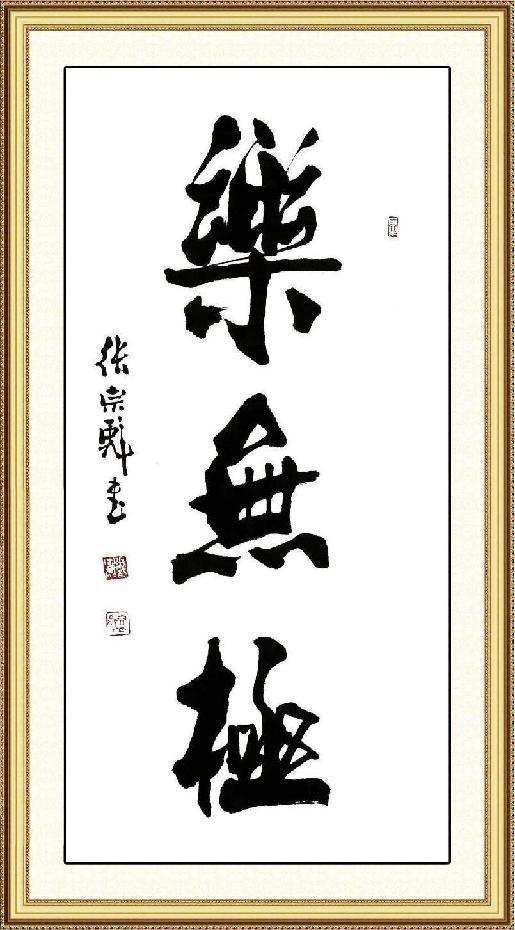 樂無極
張宗彪書